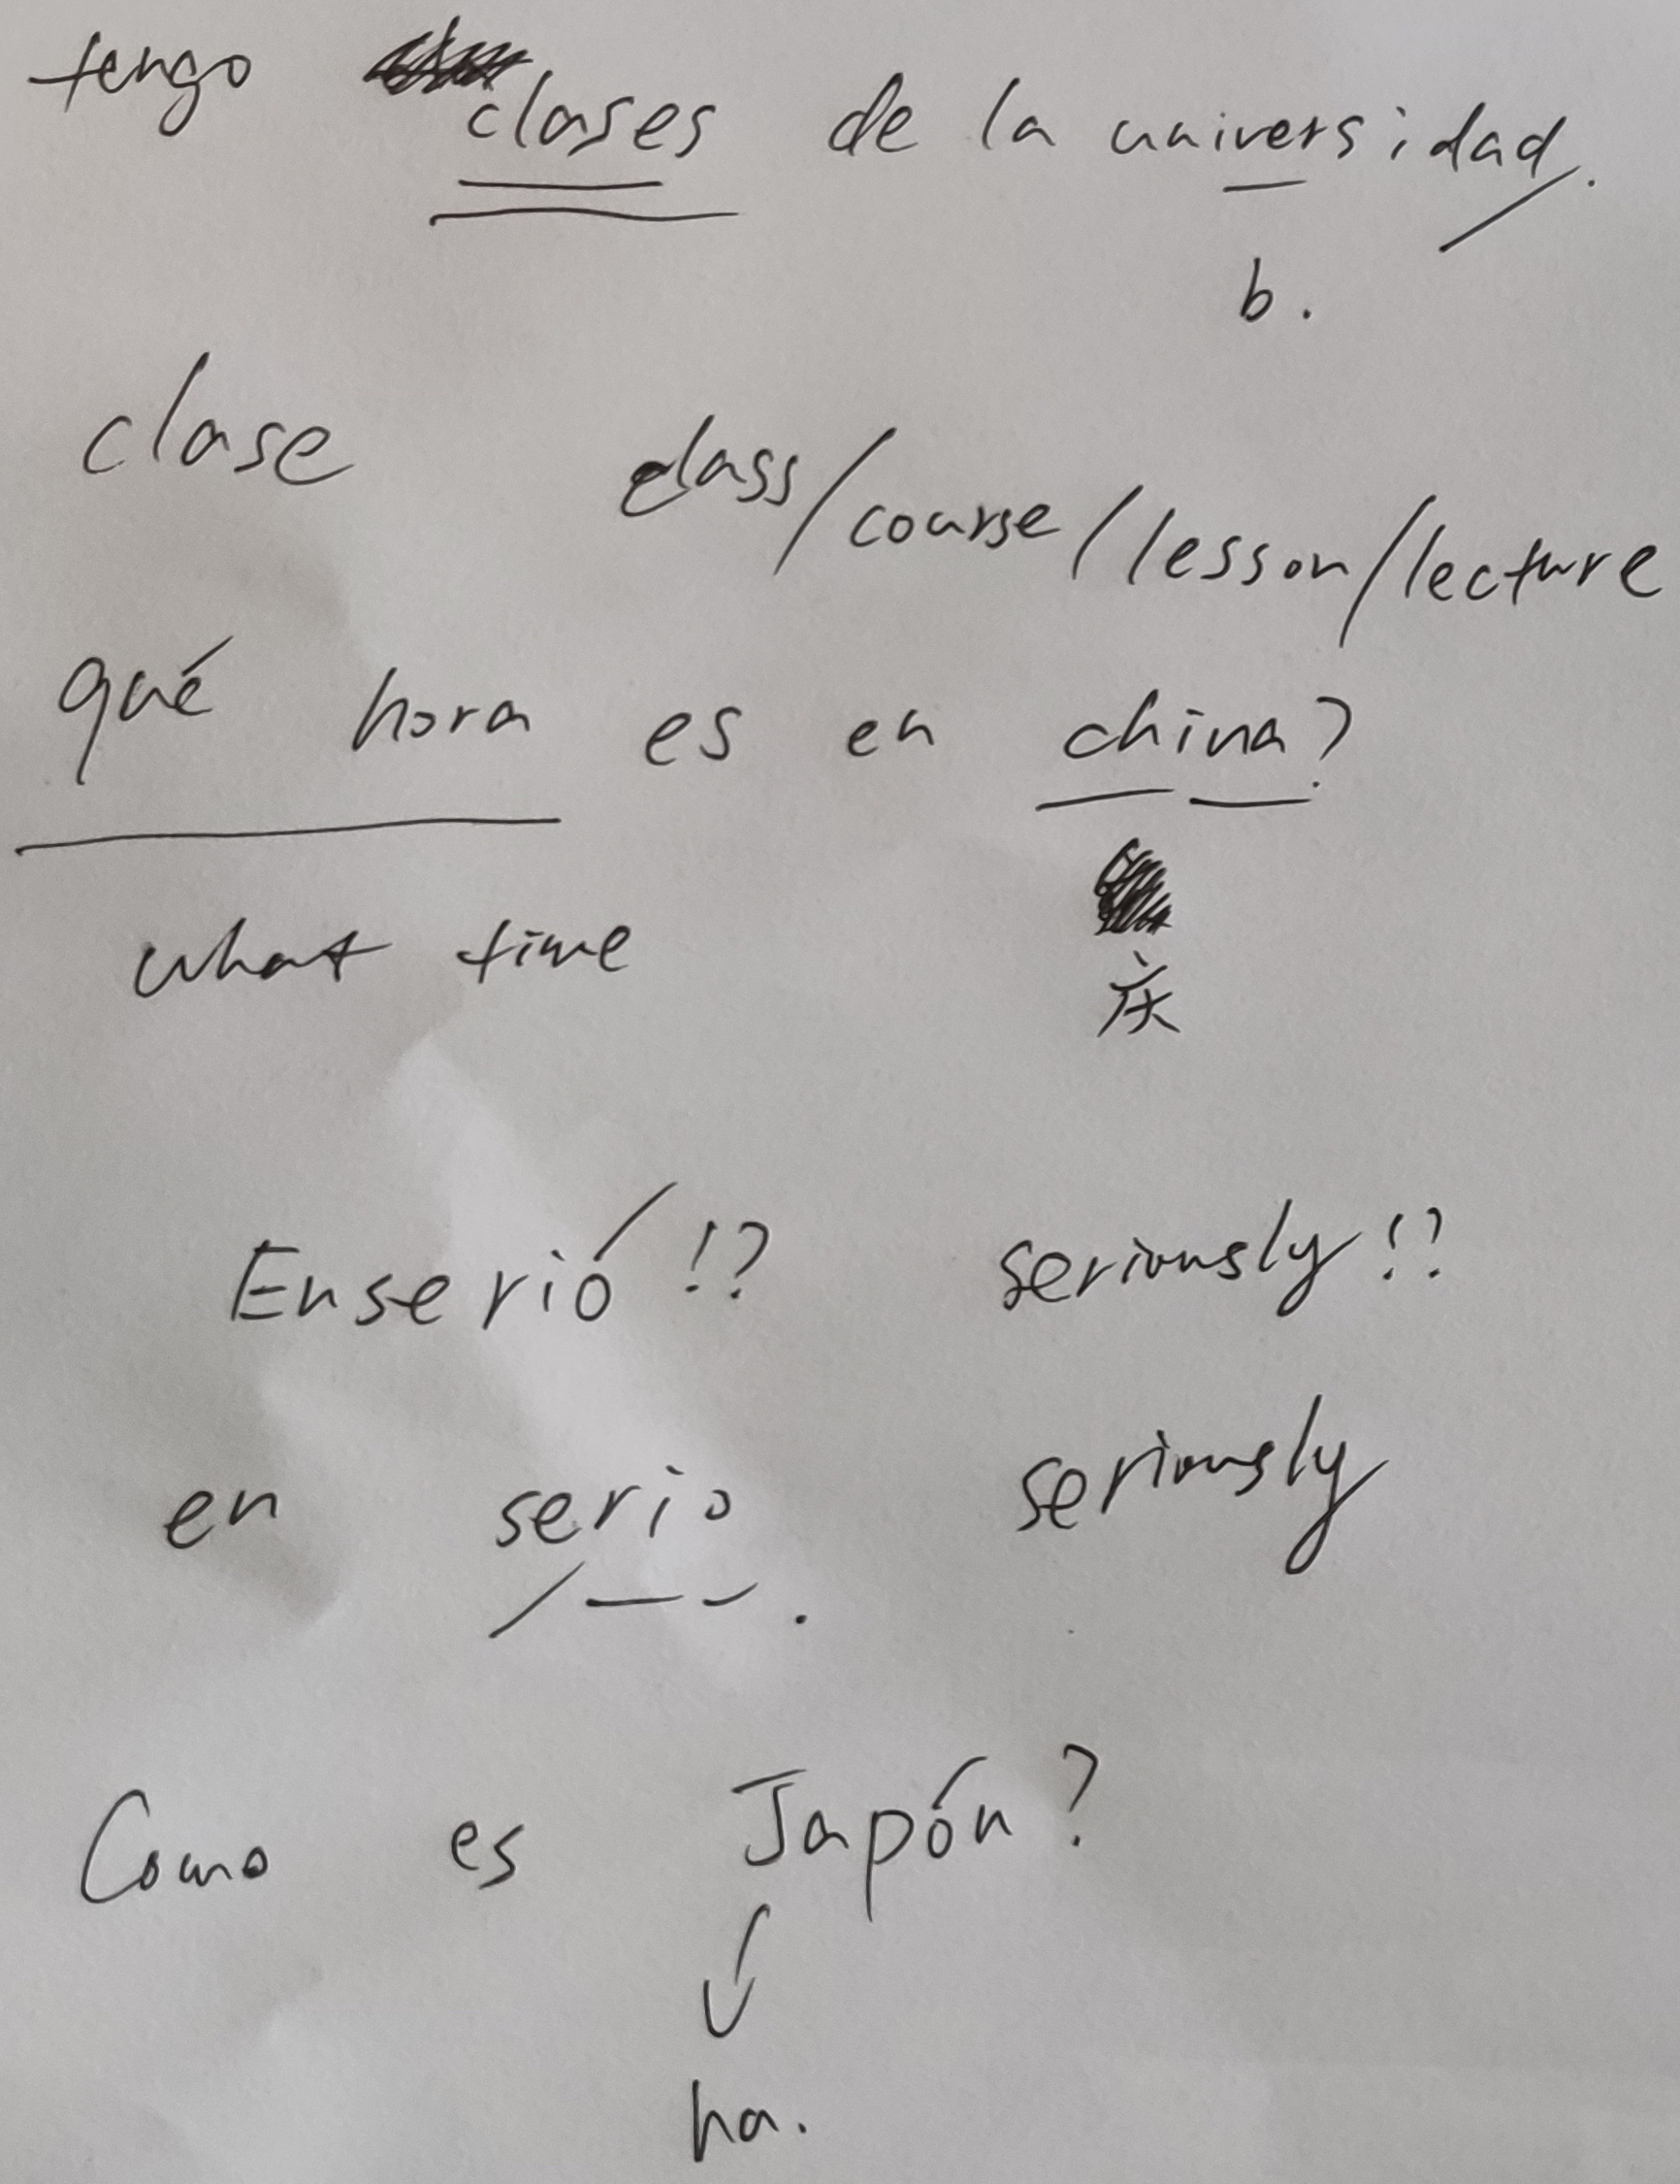 tengo clases de la universidad.
b.
clase class/course/lesson/lecture
qué hora es en china?
what time
庆
Enserió!? seriously!?
en serio seriously
Como es Japón?
ha.